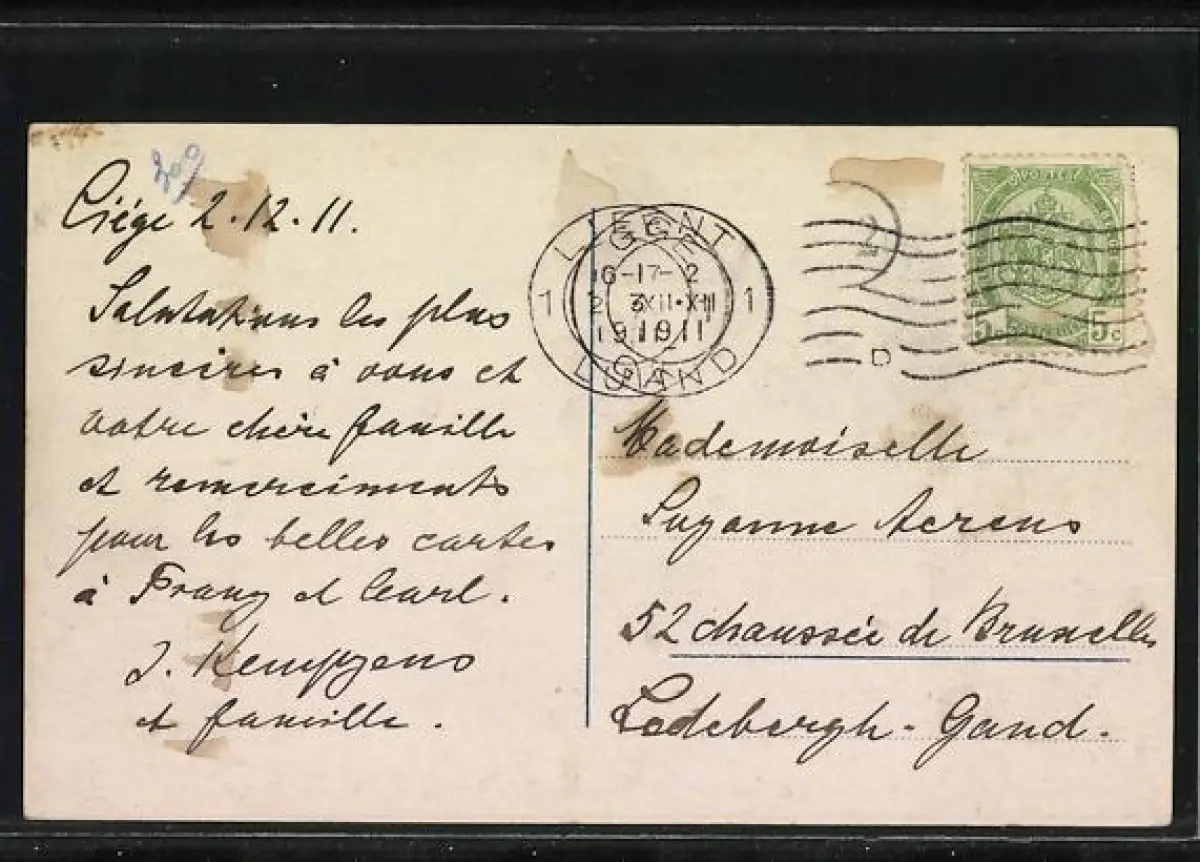 Liége 2.12.11.
Salutations les plus
sincères à vous et
votre chère famille
et remerciments
pour les belles cartes
à Franz et Carl.
J. Kempgens
et famille.
LIEGE
GENT
1 1
1911
GAND
POSTES
5c 5c
D
Mademoiselle
Suzanne Aerens
52 chaussée de Bruxelles
Ledebergh-Gand.